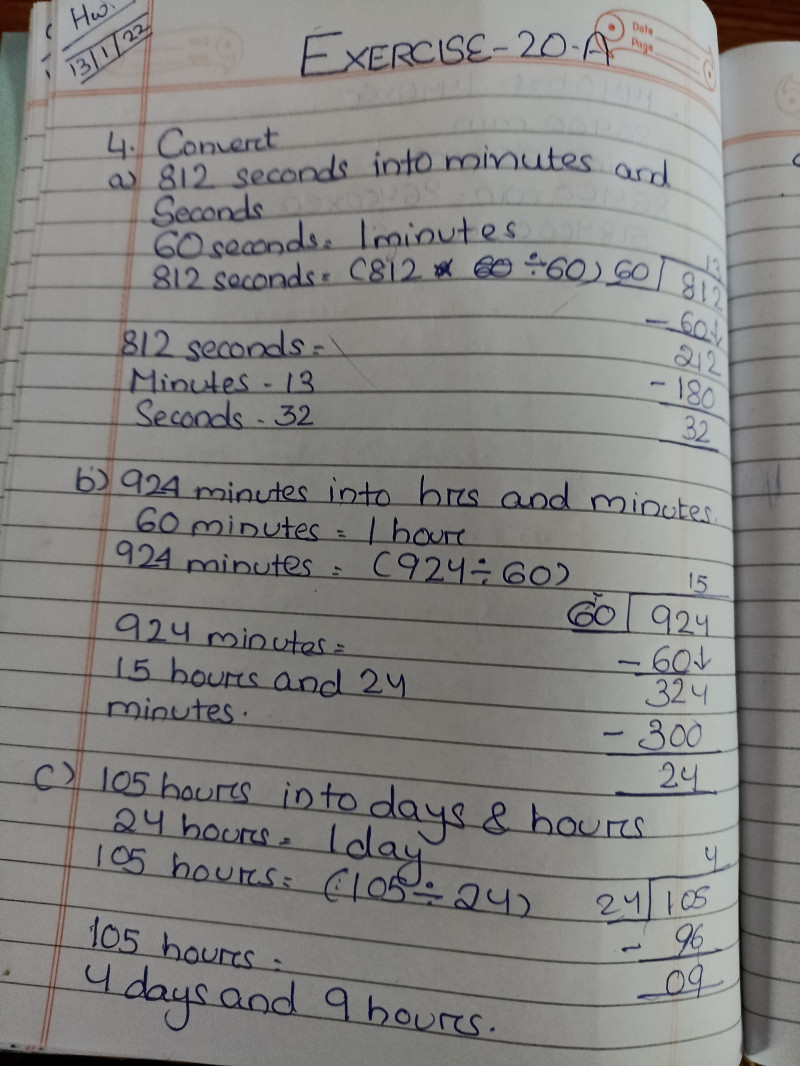 Hw.
13/1/22
Date
Page
EXERCISE-20-A
4. Convert
a) 812 seconds into minutes and
Seconds
60 seconds = 1 minutes
812 seconds = (812 ÷ 60) 60 812
13
- 60↓
212
- 180
32
812 seconds =
Minutes - 13
Seconds - 32
b) 924 minutes into hrs and minutes.
60 minutes = 1 hour
924 minutes = (924 ÷ 60)
15
60 924
- 60↓
324
- 300
24
924 minutes =
15 hours and 24
minutes.
c) 105 hours into days & hours
24 hours = 1 day
105 hours = (105 ÷ 24)
4
24 105
- 96
09
105 hours =
4 days and 9 hours.